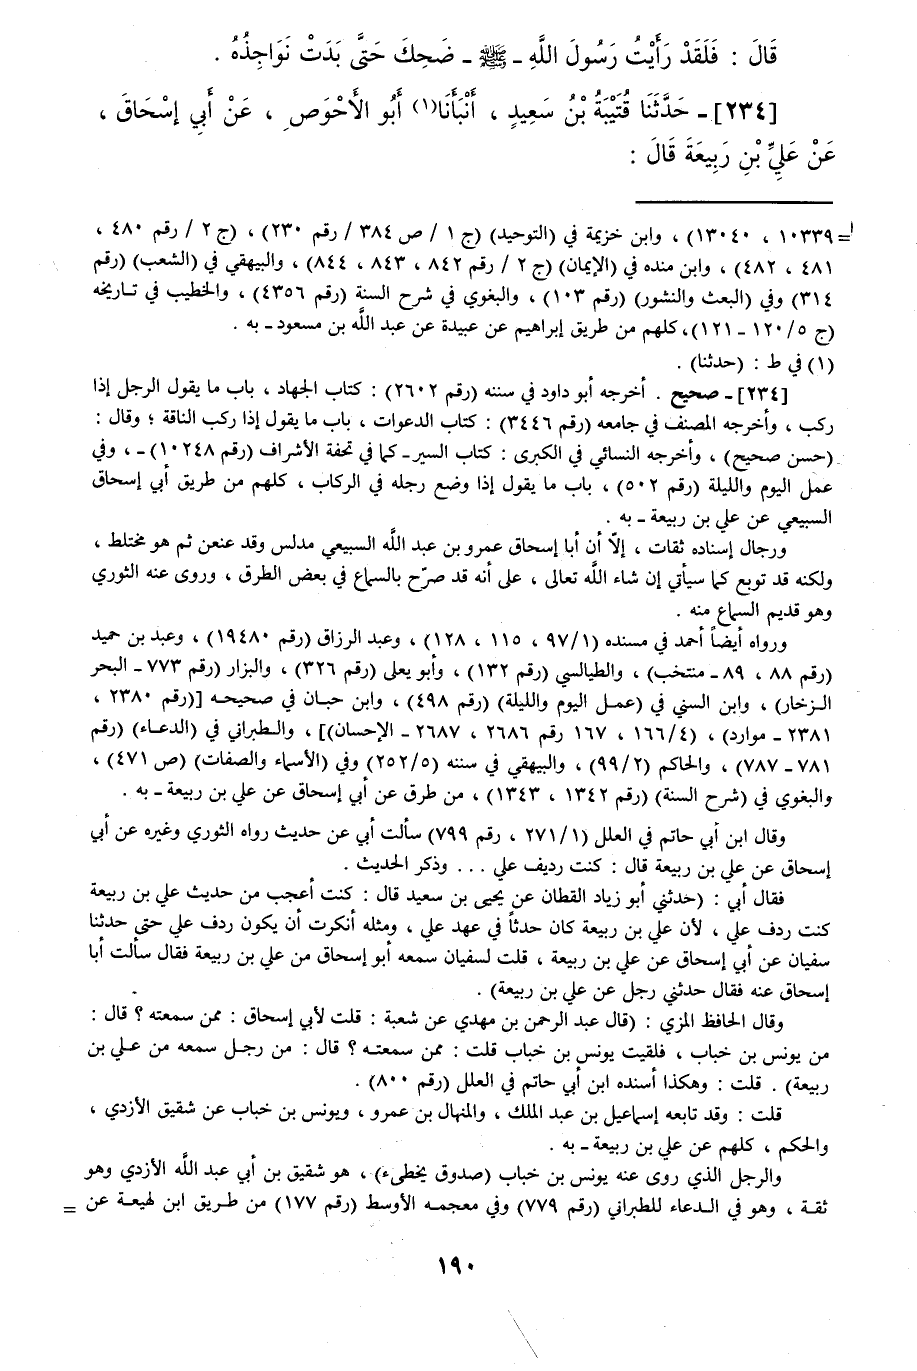 قَالَ : فَلَقَدْ رَأَيْتُ رَسُولَ اللَّهِ ـ ﷺ ـ ضَحِكَ حَتَّى بَدَتْ نَوَاجِذُهُ .
[٢٣٤] ـ حَدَّثَنَا قُتَيْبَةُ بْنُ سَعِيدٍ ، أَنْبَأَنَا(١) أَبُو الأَحْوَصِ ، عَنْ أَبِي إِسْحَاقَ ،
عَنْ عَلِيِّ بْنِ رَبِيعَةَ قَالَ :
= ١٠٣٣٩ ، ١٣٠٤٠) ، وابن خزيمة في (التوحيد) (ج ١ / ص ٣٨٤ / رقم ٢٣٠) ، (ج ٢ / رقم ٤٨٠ ،
٤٨١ ، ٤٨٢) ، وابن منده في (الإيمان) (ج ٢ / رقم ٨٤٢ ، ٨٤٣ ، ٨٤٤) ، والبيهقي في (الشعب) (رقم
٣١٤) وفي (البعث والنشور) (رقم ١٠٣) ، والبغوي في شرح السنة (رقم ٤٣٥٦) ، والخطيب في تاريخه
(ج ٥/١٢٠ ـ ١٢١)، كلهم من طريق إبراهيم عن عبيدة عن عبد اللَّه بن مسعود ـ به .
(١) في ط : (حدثنا) .
[٢٣٤] ـ صحيح . أخرجه أبو داود في سننه (رقم ٢٦٠٢) : كتاب الجهاد ، باب ما يقول الرجل إذا
ركب ، وأخرجه المصنف في جامعه (رقم ٣٤٤٦) : كتاب الدعوات ، باب ما يقول إذا ركب الناقة ؛ وقال :
(حسن صحيح) ، وأخرجه النسائي في الكبرى : كتاب السير ـ كما في تحفة الأشراف (رقم ١٠٢٤٨) ـ ، وفي
عمل اليوم والليلة (رقم ٥٠٢) ، باب ما يقول إذا وضع رجله في الركاب ، كلهم من طريق أبي إسحاق
السبيعي عن علي بن ربيعة ـ به .
ورجال إسناده ثقات ، إلّا أن أبا إسحاق عمرو بن عبد اللَّه السبيعي مدلس وقد عنعن ثم هو مختلط ،
ولكنه قد توبع كما سيأتي إن شاء اللَّه تعالى ، على أنه قد صرّح بالسماع في بعض الطرق ، وروى عنه الثوري
وهو قديم السماع منه .
ورواه أيضاً أحمد في مسنده (٩٧/١ ، ١١٥ ، ١٢٨) ، وعبد الرزاق (رقم ١٩٤٨٠) ، وعبد بن حميد
(رقم ٨٨ ، ٨٩ ـ منتخب) ، والطيالسي (رقم ١٣٢) ، وأبو يعلى (رقم ٣٢٦) ، والبزار (رقم ٧٧٣ ـ البحر
الزخار) ، وابن السني في (عمل اليوم والليلة) (رقم ٤٩٨) ، وابن حبان في صحيحه [(رقم ٢٣٨٠ ،
٢٣٨١ ـ موارد) ، (١٦٦/٤ ، ١٦٧ رقم ٢٦٨٦ ، ٢٦٨٧ ـ الإحسان)] ، والطبراني في (الدعاء) (رقم
٧٨١ ـ ٧٨٧) ، والحاكم (٩٩/٢) ، والبيهقي في سننه (٢٥٢/٥) وفي (الأسماء والصفات) (ص ٤٧١) ،
والبغوي في (شرح السنة) (رقم ١٣٤٢ ، ١٣٤٣) ، من طرق عن أبي إسحاق عن علي بن ربيعة ـ به .
وقال ابن أبي حاتم في العلل (٢٧١/١ ، رقم ٧٩٩) سألت أبي عن حديث رواه الثوري وغيره عن أبي
إسحاق عن علي بن ربيعة قال : كنت رديف علي . . . وذكر الحديث .
فقال أبي : (حدثني أبو زياد القطان عن يحيى بن سعيد قال : كنت أعجب من حديث علي بن ربيعة
كنت ردف علي ، لأن علي بن ربيعة كان حدثاً في عهد علي ، ومثله أنكرت أن يكون ردف علي حتى حدثنا
سفيان عن أبي إسحاق عن علي بن ربيعة ، قلت لسفيان سمعه أبو إسحاق من علي بن ربيعة فقال سألت أبا
إسحاق عنه فقال حدثني رجل عن علي بن ربيعة) .
وقال الحافظ المزي : (قال عبد الرحمن بن مهدي عن شعبة : قلت لأبي إسحاق : ممن سمعته ؟ قال :
من يونس بن خباب ، فلقيت يونس بن خباب قلت : ممن سمعته ؟ قال : من رجل سمعه من علي بن
ربيعة) . قلت : وهكذا أسنده ابن أبي حاتم في العلل (رقم ٨٠٠) .
قلت : وقد تابعه إسماعيل بن عبد الملك ، والمنهال بن عمرو ، ويونس بن خباب عن شقيق الأزدي ،
والحكم ، كلهم عن علي بن ربيعة ـ به .
والرجل الذي روى عنه يونس بن خباب (صدوق يخطىء) ، هو شقيق بن أبي عبد اللَّه الأزدي وهو
ثقة ، وهو في الدعاء للطبراني (رقم ٧٧٩) وفي معجمه الأوسط (رقم ١٧٧) من طريق ابن لهيعة عن =
١٩٠